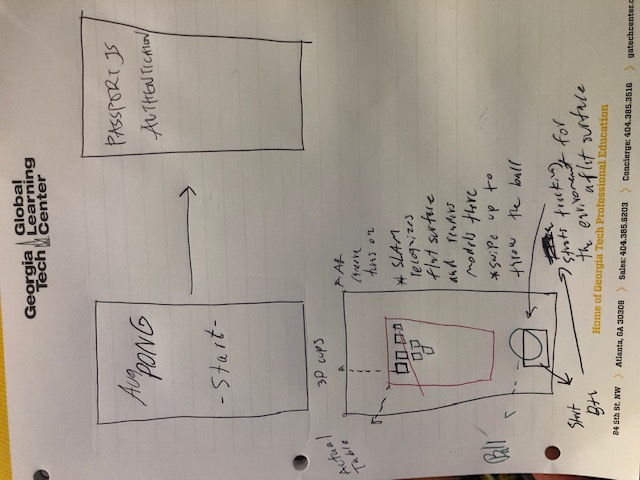 Georgia Tech
Global Learning Center
Aug
PONG
-Start-
PASSPORT JS
AUTHENTICATION
3D cups
Actual
Table
* AR
turns on
* SLAM
recognizes
flat surface
and renders
models there
* swipe up to
throw the ball
Ball
Start
Btn
starts tracking
the enviroment for
a flat surface
Home of Georgia Tech Professional Education
84 5th St. NW 〉 Atlanta, GA 30308 〉 Sales: 404.385.6203 〉 Concierge: 404.385.3516 〉 gatechcenter.c